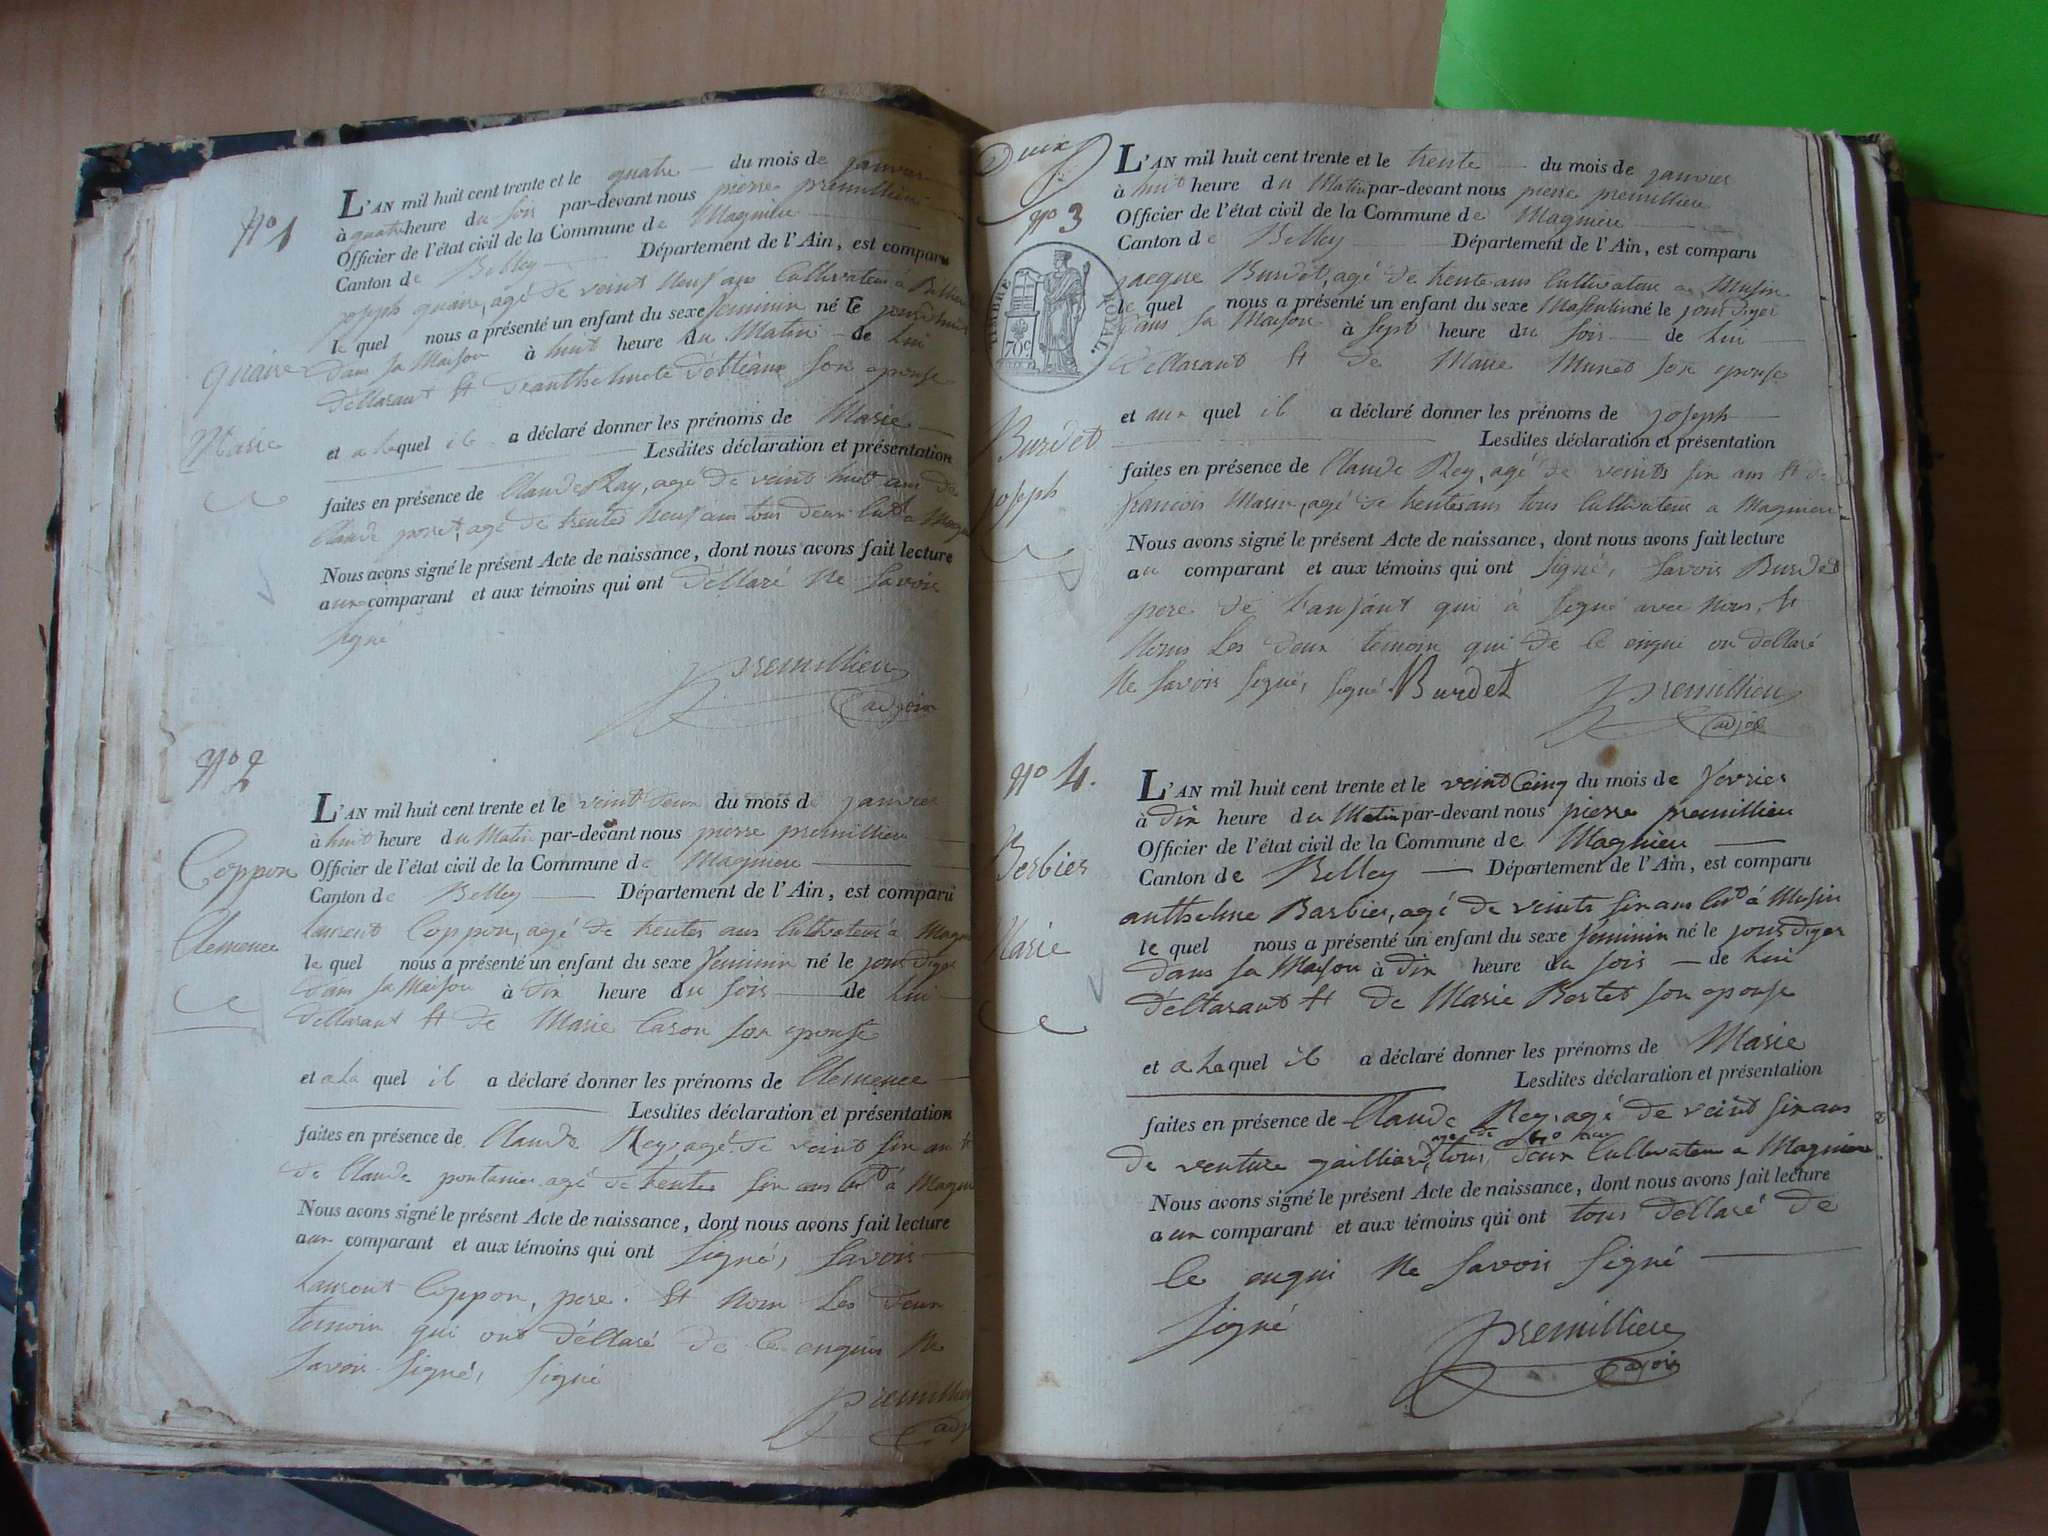 No 1
L'AN mil huit cent trente et le quatre du mois de janvier
à quatre heure du soir par-devant nous pierre premillieu
Officier de l'état civil de la Commune de Magnieu
Canton de Belley Département de l'Ain, est comparu
joseph quaire, agé de veint neuf ans Cultivateur à Billieu
le quel nous a présenté un enfant du sexe feminin né le jourd'huit
dans sa Maison à huit heure du Matin de lui
déllarant et son epouse
quaire
Marie
et a laquel il a déclaré donner les prénoms de Marie
Lesdites déclaration et présentation
faites en présence de Claude Rey, agé de veint huit ans de
Claude poret, agé de trente neuf ans tous deux Cult à Magnieu
Nous avons signé le présent Acte de naissance, dont nous avons fait lecture
aux comparant et aux témoins qui ont déllaré ne savoir
signé
premillieu
adjoin
No 2
L'AN mil huit cent trente et le veint deux du mois de janvier
à huit heure du Matin par-devant nous pierre premillieu
Officier de l'état civil de la Commune de Magnieu
Canton de Belley Département de l'Ain, est comparu
Coppon
Clemence
laurent Coppon, agé de trentes ans Cultivateur à Magnieu
le quel nous a présenté un enfant du sexe feminin né le jour d'yer
dans sa Maison à dix heure du soir de lui
dellarant et de Marie son epouse
et a la quel il a déclaré donner les prénoms de Clemence
Lesdites déclaration et présentation
faites en présence de Claude Rey agé de veint six an et
de Claude pontanier agé de trentes six ans Cult à Magnieu
Nous avons signé le présent Acte de naissance, dont nous avons fait lecture
aux comparant et aux témoins qui ont signé, savoir
laurent Coppon, pere. et Nom les deux
temoin qui ont déllaré de ce enquis ne
savoir signé, signé
premillieu
adj
Deux
No 3
L'AN mil huit cent trente et le trente du mois de janvier
à huit heure du Matin par-devant nous pierre premillieu
Officier de l'état civil de la Commune de Magnieu
Canton de Belley Département de l'Ain, est comparu
TIMBRE ROYAL
70c
jacque Burdet, agé de trente ans Cultivateur a Musin
le quel nous a présenté un enfant du sexe Masculin né le jour d'yer
dans sa Maison à sept heure du soir de lui
dellarant et de Marie Munet son epouse
Burdet
joseph
et aux quel il a déclaré donner les prénoms de joseph
Lesdites déclaration et présentation
faites en présence de Claude Rey, agé de veints six ans et de
francois Masson, agé de trentes ans tous Cultivateur a Magnieu
Nous avons signé le présent Acte de naissance, dont nous avons fait lecture
au comparant et aux témoins qui ont signé, savoir Burdet
pere de l'anfant qui à signé avec nous, et
Noms les deux temoin qui de ce enqui on dellaré
ne savoir signé, signé Burdet
premillieu
adjoi
No 4.
L'AN mil huit cent trente et le veint Ceinq du mois de fevrier
à dix heure du Matin par-devant nous pierre premillieu
Officier de l'état civil de la Commune de Magnieu
Canton de Belley Département de l'Ain, est comparu
Berbier
Marie
anthelme Barbier, agé de veints six ans Cult à Musin
le quel nous a présenté un enfant du sexe feminin né le jour d'yer
dans sa Maison à dix heure du soir de lui
dellarant et de Marie Bertet son epouse
et a laquel il a déclaré donner les prénoms de Marie
Lesdites déclaration et présentation
faites en présence de Claude Rey, agé de veint six ans
de venture gailliard, tous deux Cultivateur a Magnieu
Nous avons signé le présent Acte de naissance, dont nous avons fait lecture
aux comparant et aux témoins qui ont tous dellaré de
ce enqui ne savoir signé
signé
premillieu
adjoin